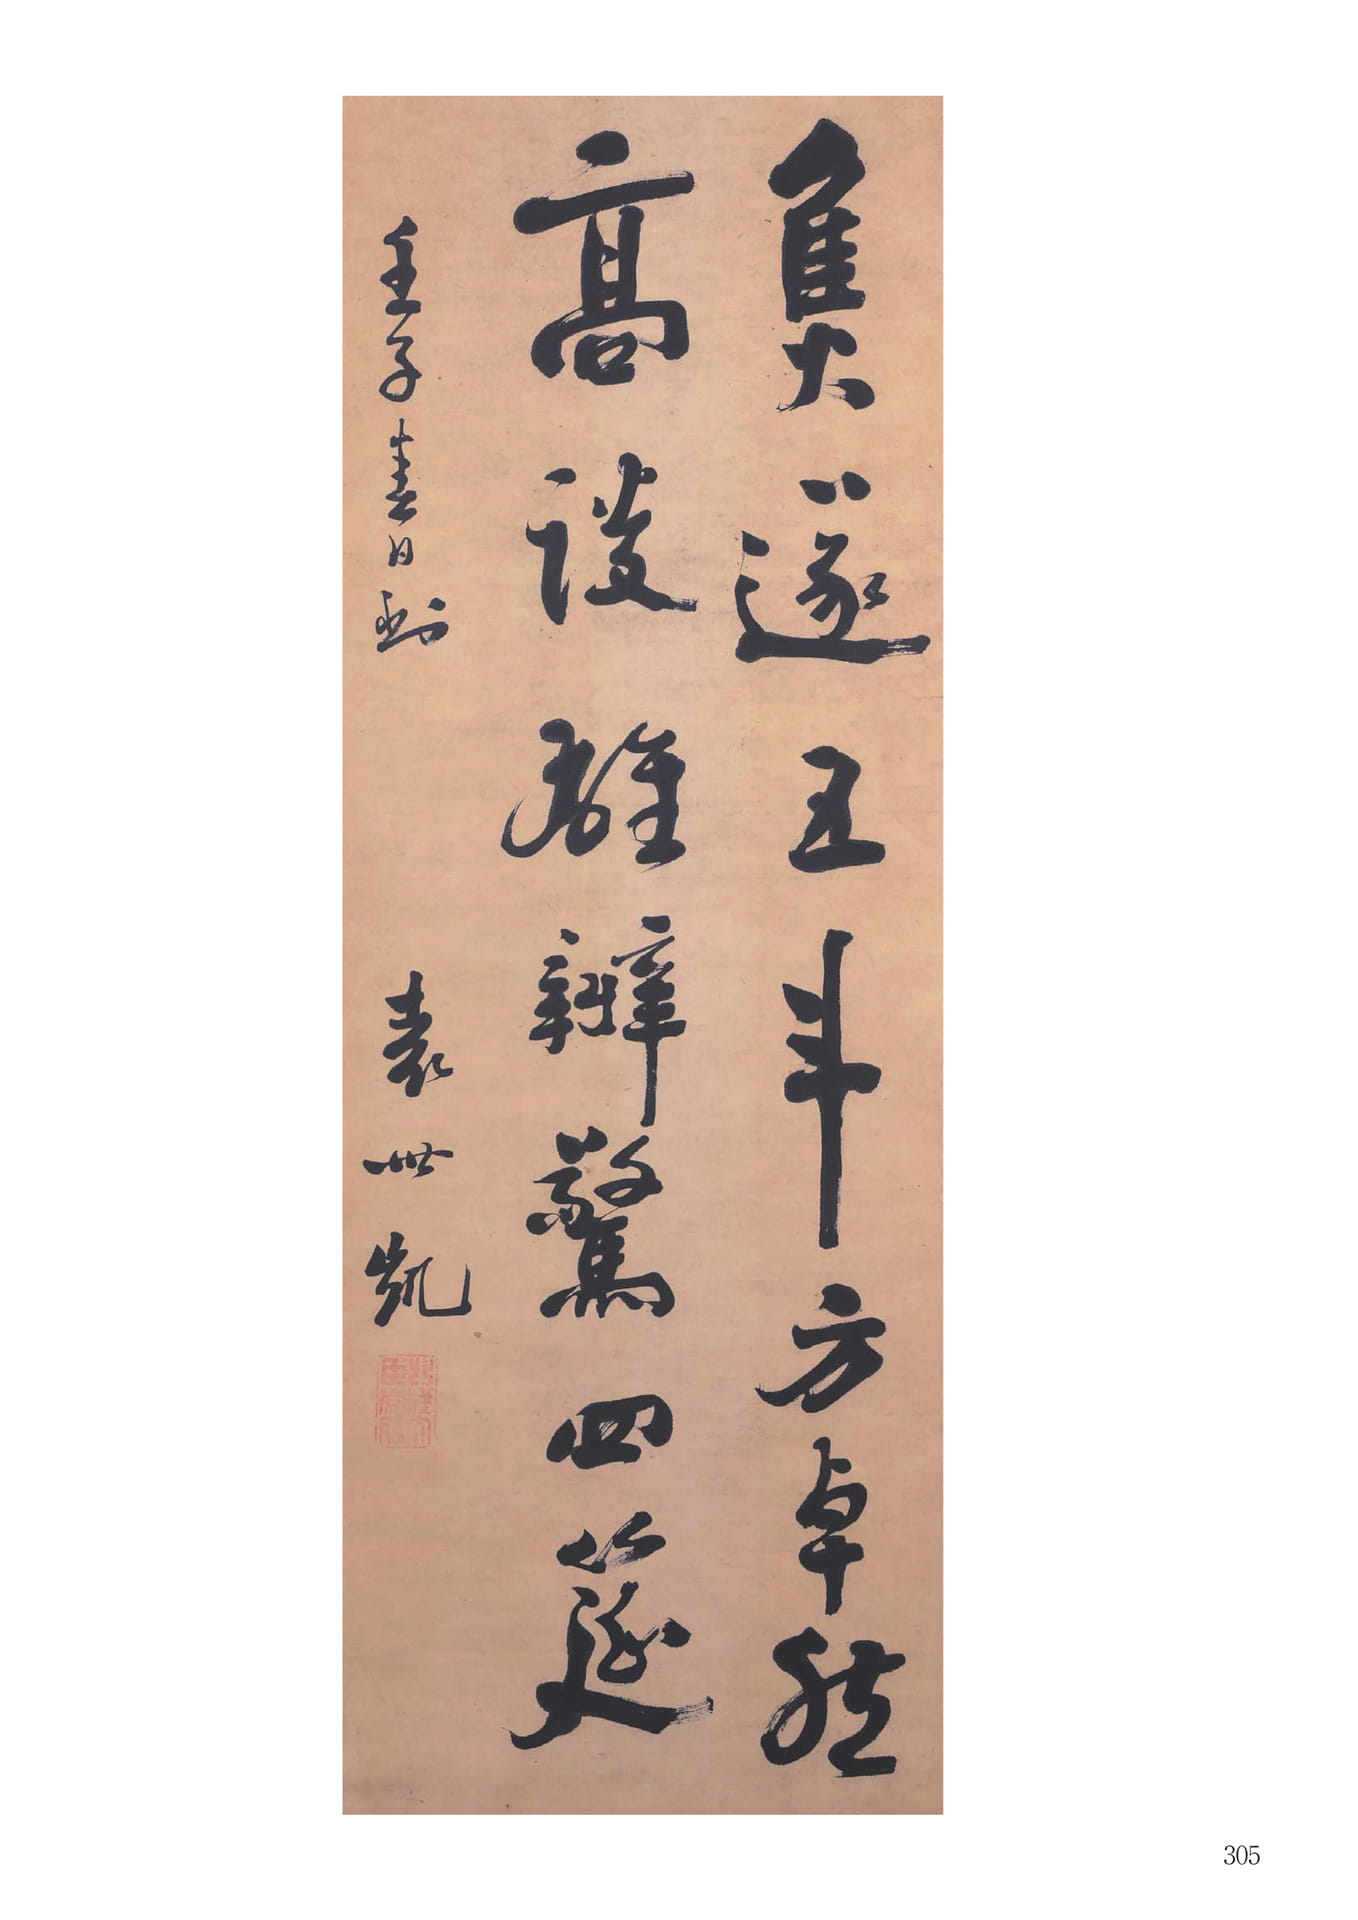 焦遂五斗方卓然
高談雄辯驚四筵
壬子春日到
袁世凱
305